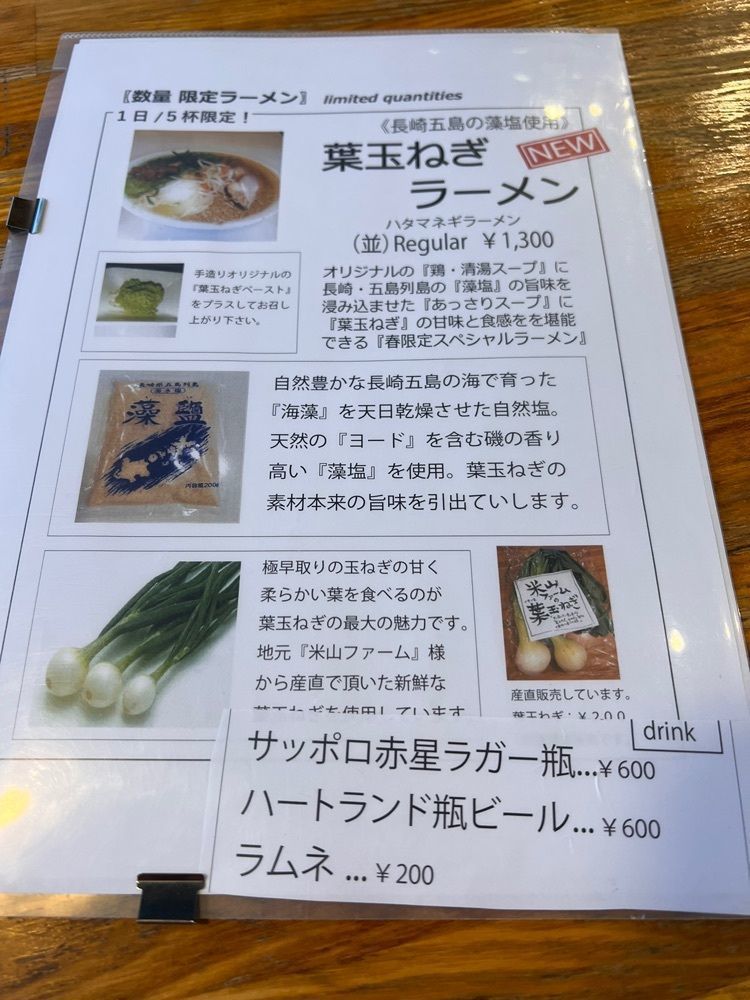 〖数量 限定ラーメン〗 limited quantities
1日/5杯限定！
《長崎五島の藻塩使用》
葉玉ねぎ
ラーメン
NEW
ハタマネギラーメン
（並）Regular ￥1,300
手造りオリジナルの
『葉玉ねぎペースト』
をプラスしてお召し
上がり下さい。
オリジナルの『鶏・清湯スープ』に
長崎・五島列島の『藻塩』の旨味を
浸み込ませた『あっさりスープ』に
『葉玉ねぎ』の甘味と食感をを堪能
できる『春限定スペシャルラーメン』
長崎県五島列島
藻塩
内容量200g
自然豊かな長崎五島の海で育った
『海藻』を天日乾燥させた自然塩。
天然の『ヨード』を含む磯の香り
高い『藻塩』を使用。葉玉ねぎの
素材本来の旨味を引出ていします。
極早取りの玉ねぎの甘く
柔らかい葉を食べるのが
葉玉ねぎの最大の魅力です。
地元『米山ファーム』様
から産直で頂いた新鮮な
葉玉ねぎを使用しています
米山
ファームの
葉玉ねぎ
産直販売しています。
葉玉ねぎ：￥200
drink
サッポロ赤星ラガー瓶...￥600
ハートランド瓶ビール...￥600
ラムネ ...￥200